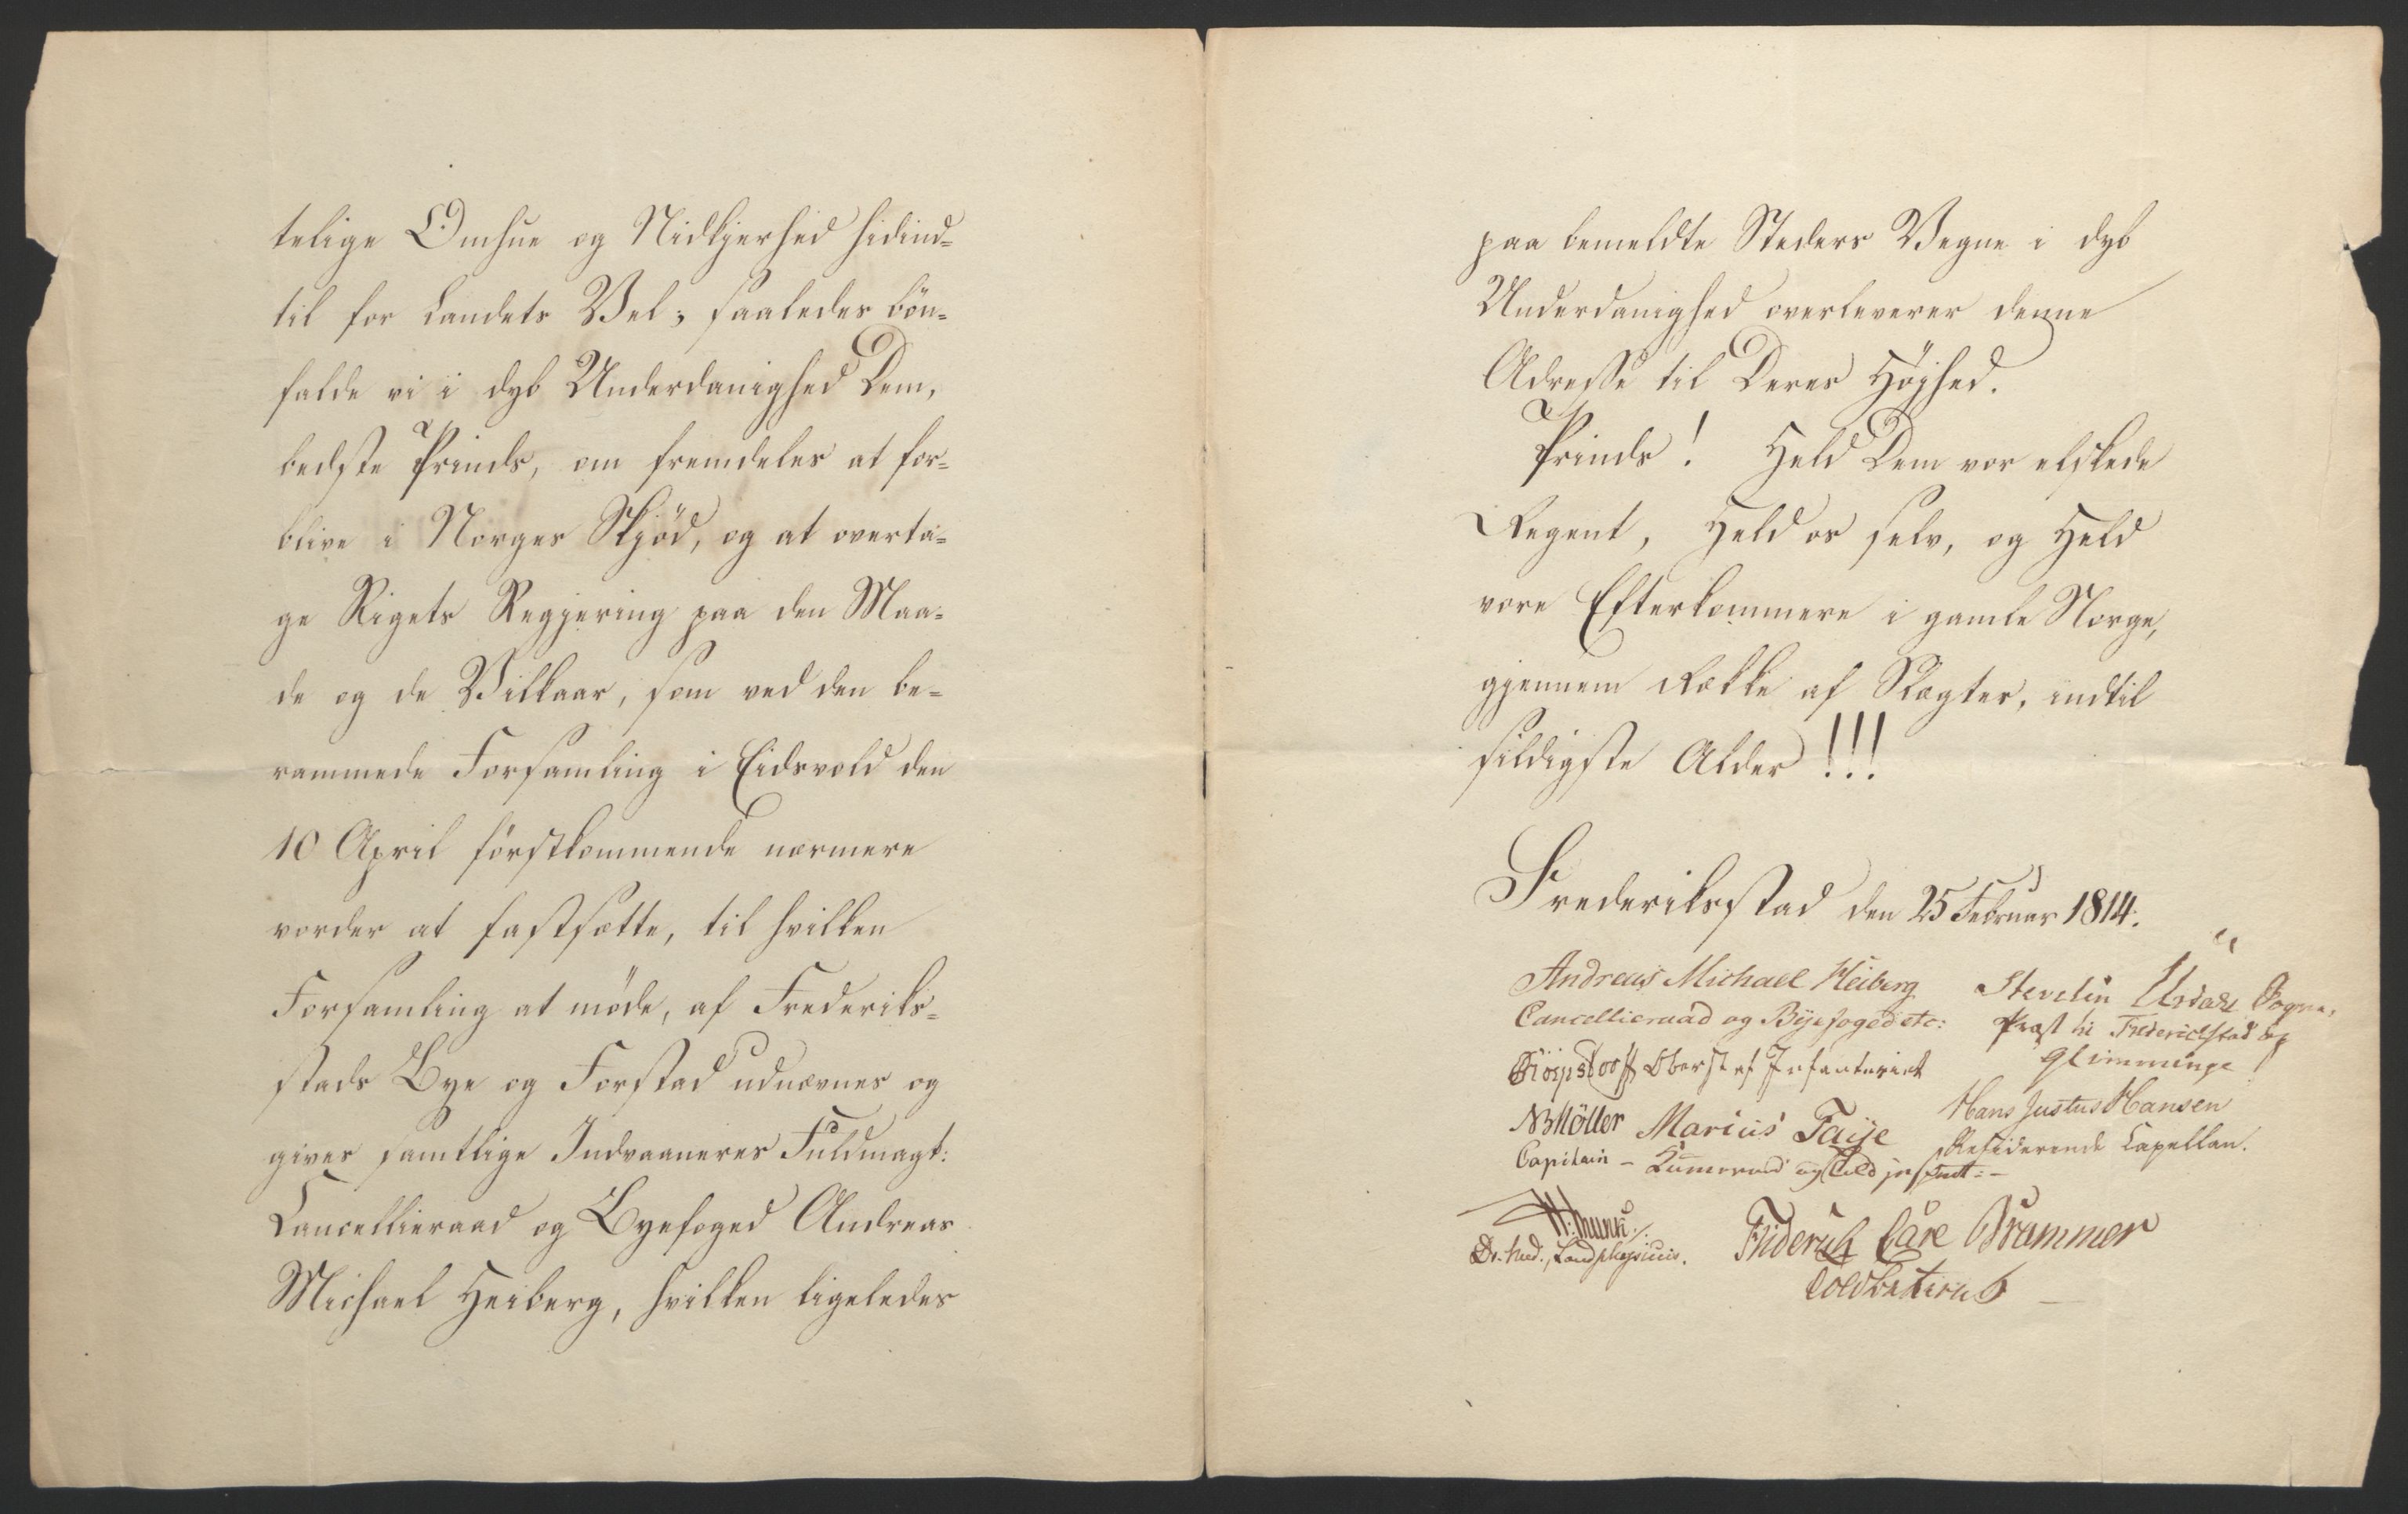 telige Omhue og Nidkjerhed hidind-
til for Landets Vel; saaledes bön-
falde vi i dyb Underdanighed Dem,
bedste Prinds, om fremdeles at for-
blive i Norges Skjöd, og at overta-
ge Rigets Regjering paa den Maa-
de og de Vilkaar, som ved den be-
rammede Forsamling i Eidsvold den
10 April förstkommende nærmere
vorder at fastsætte, til hvilken
Forsamling at möde, af Frederiks-
stads Bye og Forstad udnævnes og
gives samtlige Indvaaneres Fuldmagt:
Cancellieraad og Byefoged Andreas
Michael Heiberg, hvilken ligeledes
paa bemeldte Steders Vegne i dyb
Underdanighed overleverer denne
Adresse til Deres Höjhed.
Prinds! Held Dem vor elskede
Regent, Held os selv, og Held
vore Efterkommere i gamle Norge,
gjennem Række af Slægter, indtil
sildigste Alder!!!
Frederiksstad den 25 Februar 1814.
Andreas Michael Heiberg
Cancellieraad og Byefoged etc:
Stevelin Urdahl Sogne-
Præst til Frederichstad og
Glemminge
Oberst af Infanteriet
Hans Justus Hansen
Residerende Capellan.
NBMöller Marius Faÿe
Capitain - og
H: Munk
Dr. Med., Landphysicus.
Friderich Carl Brammer